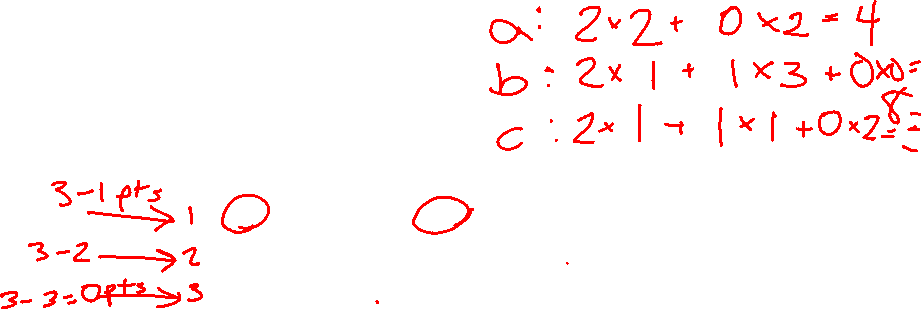 a: 2×2 + 0×2 = 4
b: 2×1 + 1×3 + 0×0 =
8
c: 2×1 + 1×1 + 0×2 = =
3-1 pts → 1
3-2 → 2
3-3 = 0pts → 3